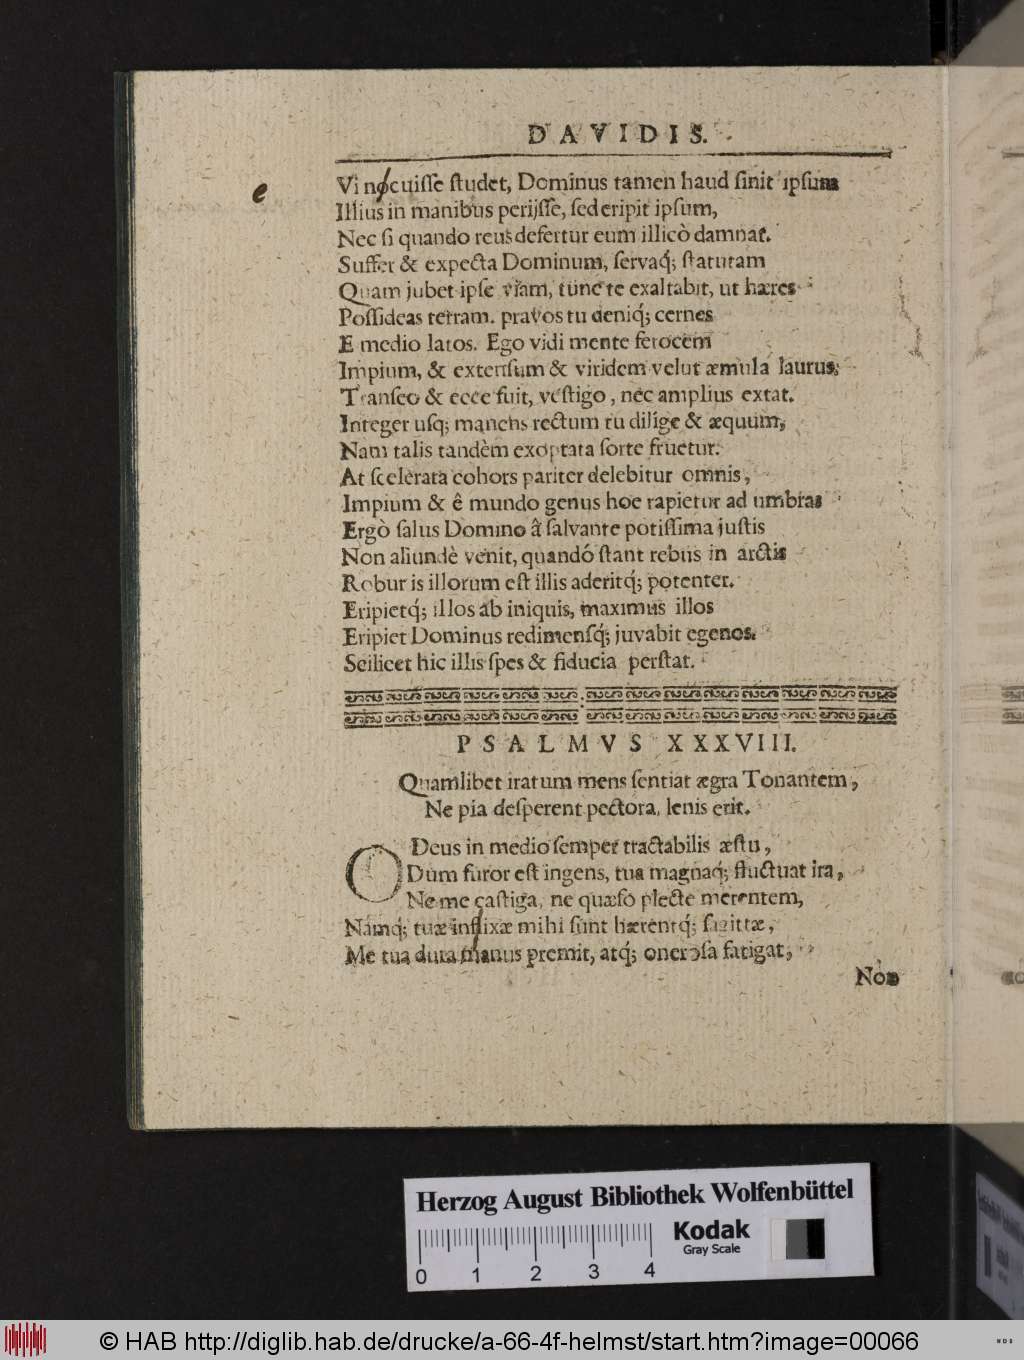 DAVIDIS.
e
Vi nocuiſſe ſtudet, Dominus tamen haud ſinit ipſum
Illius in manibus perijſſe, ſed eripit ipſum,
Nec ſi quando reus defertur eum illicò damnat.
Suffer & expecta Dominum, ſervaq́; ſtatutam
Quam jubet ipſe viam, tunc te exaltabit, ut hæres
Poſſideas terram. pravos tu deniq́; cernes
E medio latos. Ego vidi mente ferocem
Impium, & extenſum & viridem velut æmula laurus,
Tranſeo & ecce fuit, veſtigo, nec amplius extat.
Integer uſq; manens rectum tu dilige & æquum,
Nam talis tandèm exoptata ſorte fruetur.
At ſcelerata cohors pariter delebitur omnis,
Impium & ê mundo genus hoc rapietur ad umbras
Ergò ſalus Domino â ſalvante potiſſima juſtis
Non aliundè venit, quandó ſtant rebus in arctis
Robur is illorum eſt illis aderitq́; potenter.
Eripietq́; illos ab iniquis, maximus illos
Eripiet Dominus redimenſq́; juvabit egenos.
Scilicet hic illis ſpes & fiducia perſtat.
PSALMVS XXXVIII.
Quamlibet iratum mens ſentiat ægra Tonantem,
Ne pia deſperent pectora, lenis erit.
O Deus in medio ſemper tractabilis æſtu,
Dum furor eſt ingens, tua magnaq́; fluctuat ira,
Ne me caſtiga, ne quæſo plecte merentem,
Namq́; tuæ infixæ mihi ſunt hærentq́; ſagittæ,
Me tua dura manus premit, atq́; oneroſa fatigat,
Non
Herzog August Bibliothek Wolfenbüttel
Kodak
Gray Scale
0 1 2 3 4
© HAB http://diglib.hab.de/drucke/a-66-4f-helmst/start.htm?image=00066